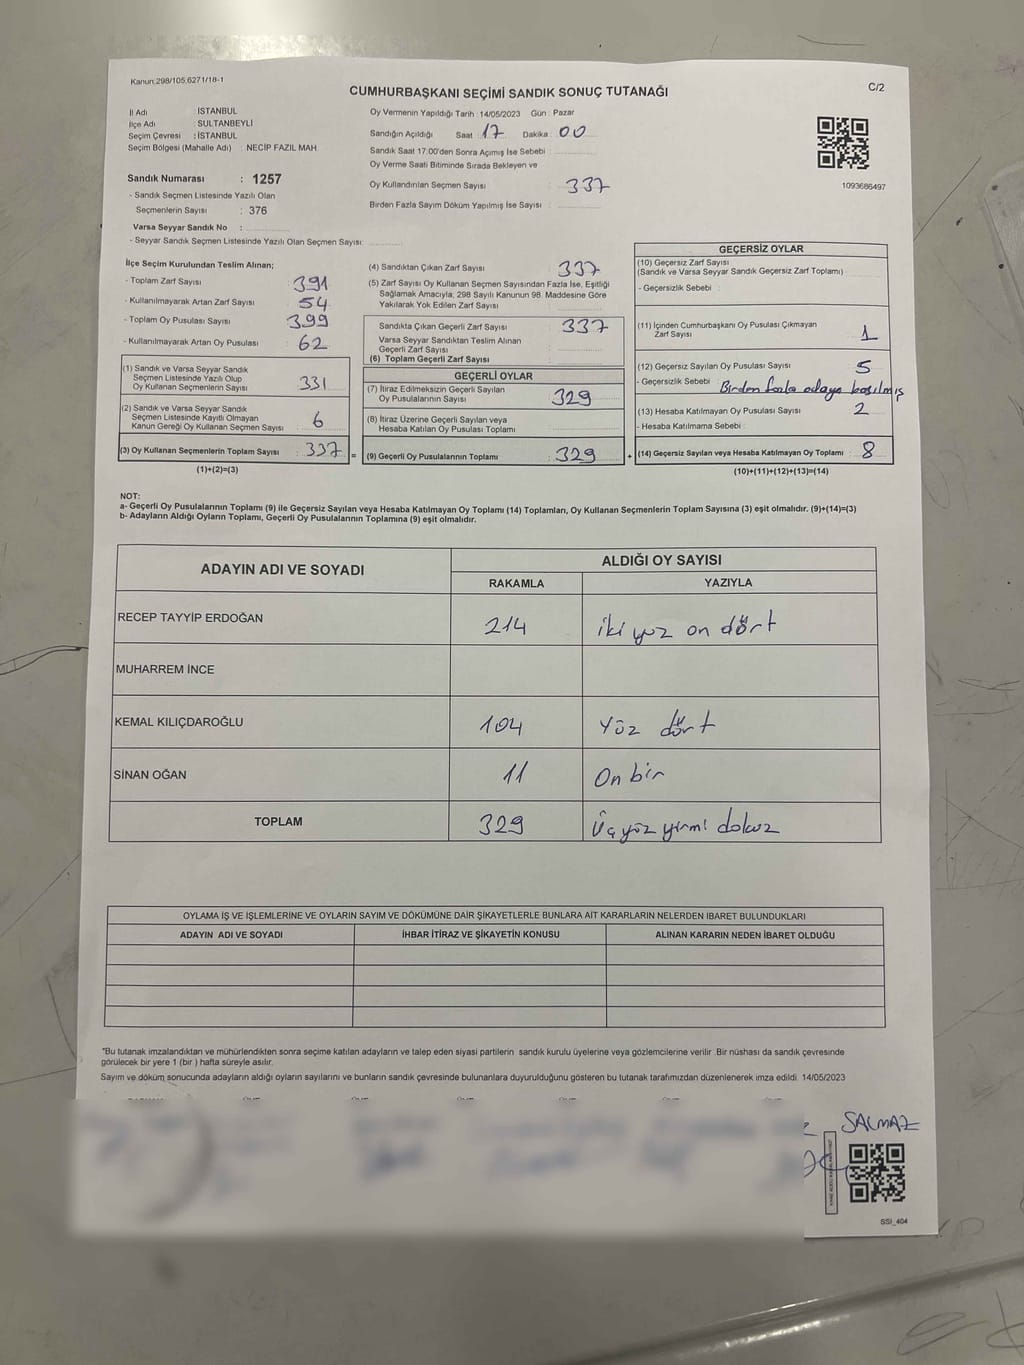 Kanun:298/105,6271/18-1
CUMHURBAŞKANI SEÇİMİ SANDIK SONUÇ TUTANAĞI
C/2
İl Adı : İSTANBUL
İlçe Adı : SULTANBEYLİ
Seçim Çevresi : İSTANBUL
Seçim Bölgesi (Mahalle Adı) : NECİP FAZIL MAH.
Sandık Numarası : 1257
- Sandık Seçmen Listesinde Yazılı Olan
Seçmenlerin Sayısı : 376
Varsa Seyyar Sandık No :
- Seyyar Sandık Seçmen Listesinde Yazılı Olan Seçmen Sayısı:
Oy Vermenin Yapıldığı Tarih :14/05/2023 Gün : Pazar
Sandığın Açıldığı Saat : 17 Dakika : 00
Sandık Saat 17:00'den Sonra Açılmış İse Sebebi :
Oy Verme Saati Bitiminde Sırada Bekleyen ve
Oy Kullandırılan Seçmen Sayısı : 337
Birden Fazla Sayım Döküm Yapılmış İse Sayısı :
1093686497
İlçe Seçim Kurulundan Teslim Alınan;
- Toplam Zarf Sayısı : 391
- Kullanılmayarak Artan Zarf Sayısı : 54
- Toplam Oy Pusulası Sayısı : 399
- Kullanılmayarak Artan Oy Pusulası : 62
(1) Sandık ve Varsa Seyyar Sandık
Seçmen Listesinde Yazılı Olup
Oy Kullanan Seçmenlerin Sayısı : 331
(2) Sandık ve Varsa Seyyar Sandık
Seçmen Listesinde Kayıtlı Olmayan
Kanun Gereği Oy Kullanan Seçmen Sayısı : 6
(3) Oy Kullanan Seçmenlerin Toplam Sayısı : 337
(1)+(2)=(3)
(4) Sandıktan Çıkan Zarf Sayısı : 337
(5) Zarf Sayısı Oy Kullanan Seçmen Sayısından Fazla İse, Eşitliği
Sağlamak Amacıyla, 298 Sayılı Kanunun 98. Maddesine Göre
Yakılarak Yok Edilen Zarf Sayısı :
Sandıkta Çıkan Geçerli Zarf Sayısı : 337
Varsa Seyyar Sandıktan Teslim Alınan
Geçerli Zarf Sayısı :
(6) Toplam Geçerli Zarf Sayısı :
GEÇERLİ OYLAR
(7) İtiraz Edilmeksizin Geçerli Sayılan
Oy Pusulalarının Sayısı : 329
(8) İtiraz Üzerine Geçerli Sayılan veya
Hesaba Katılan Oy Pusulası Toplamı :
= (9) Geçerli Oy Pusulalarının Toplamı : 329
GEÇERSİZ OYLAR
(10) Geçersiz Zarf Sayısı
(Sandık ve Varsa Seyyar Sandık Geçersiz Zarf Toplamı)
- Geçersizlik Sebebi :
(11) İçinden Cumhurbaşkanı Oy Pusulası Çıkmayan
Zarf Sayısı : 1
(12) Geçersiz Sayılan Oy Pusulası Sayısı : 5
- Geçersizlik Sebebi : Birden fazla adaya basılmış
(13) Hesaba Katılmayan Oy Pusulası Sayısı : 2
- Hesaba Katılmama Sebebi :
+ (14) Geçersiz Sayılan veya Hesaba Katılmayan Oy Toplamı : 8
(10)+(11)+(12)+(13)=(14)
NOT:
a- Geçerli Oy Pusulalarının Toplamı (9) ile Geçersiz Sayılan veya Hesaba Katılmayan Oy Toplamı (14) Toplamları, Oy Kullanan Seçmenlerin Toplam Sayısına (3) eşit olmalıdır. (9)+(14)=(3)
b- Adayların Aldığı Oyların Toplamı, Geçerli Oy Pusulalarının Toplamına (9) eşit olmalıdır.
ADAYIN ADI VE SOYADI
ALDIĞI OY SAYISI
RAKAMLA YAZIYLA
RECEP TAYYİP ERDOĞAN 214 iki yüz on dört
MUHARREM İNCE
KEMAL KILIÇDAROĞLU 104 Yüz dört
SİNAN OĞAN 11 On bir
TOPLAM 329 Üçyüz yirmi dokuz
OYLAMA İŞ VE İŞLEMLERİNE VE OYLARIN SAYIM VE DÖKÜMÜNE DAİR ŞİKAYETLERLE BUNLARA AİT KARARLARIN NELERDEN İBARET BULUNDUKLARI
ADAYIN ADI VE SOYADI İHBAR İTİRAZ VE ŞİKAYETİN KONUSU ALINAN KARARIN NEDEN İBARET OLDUĞU
*Bu tutanak imzalandıktan ve mühürlendikten sonra seçime katılan adayların ve talep eden siyasi partilerin sandık kurulu üyelerine veya gözlemcilerine verilir. Bir nüshası da sandık çevresinde
görülecek bir yere 1 (bir ) hafta süreyle asılır.
Sayım ve döküm sonucunda adayların aldığı oyların sayılarını ve bunların sandık çevresinde bulunanlara duyurulduğunu gösteren bu tutanak tarafımızdan düzenlenerek imza edildi. 14/05/2023
SALMAZ
SSI_404